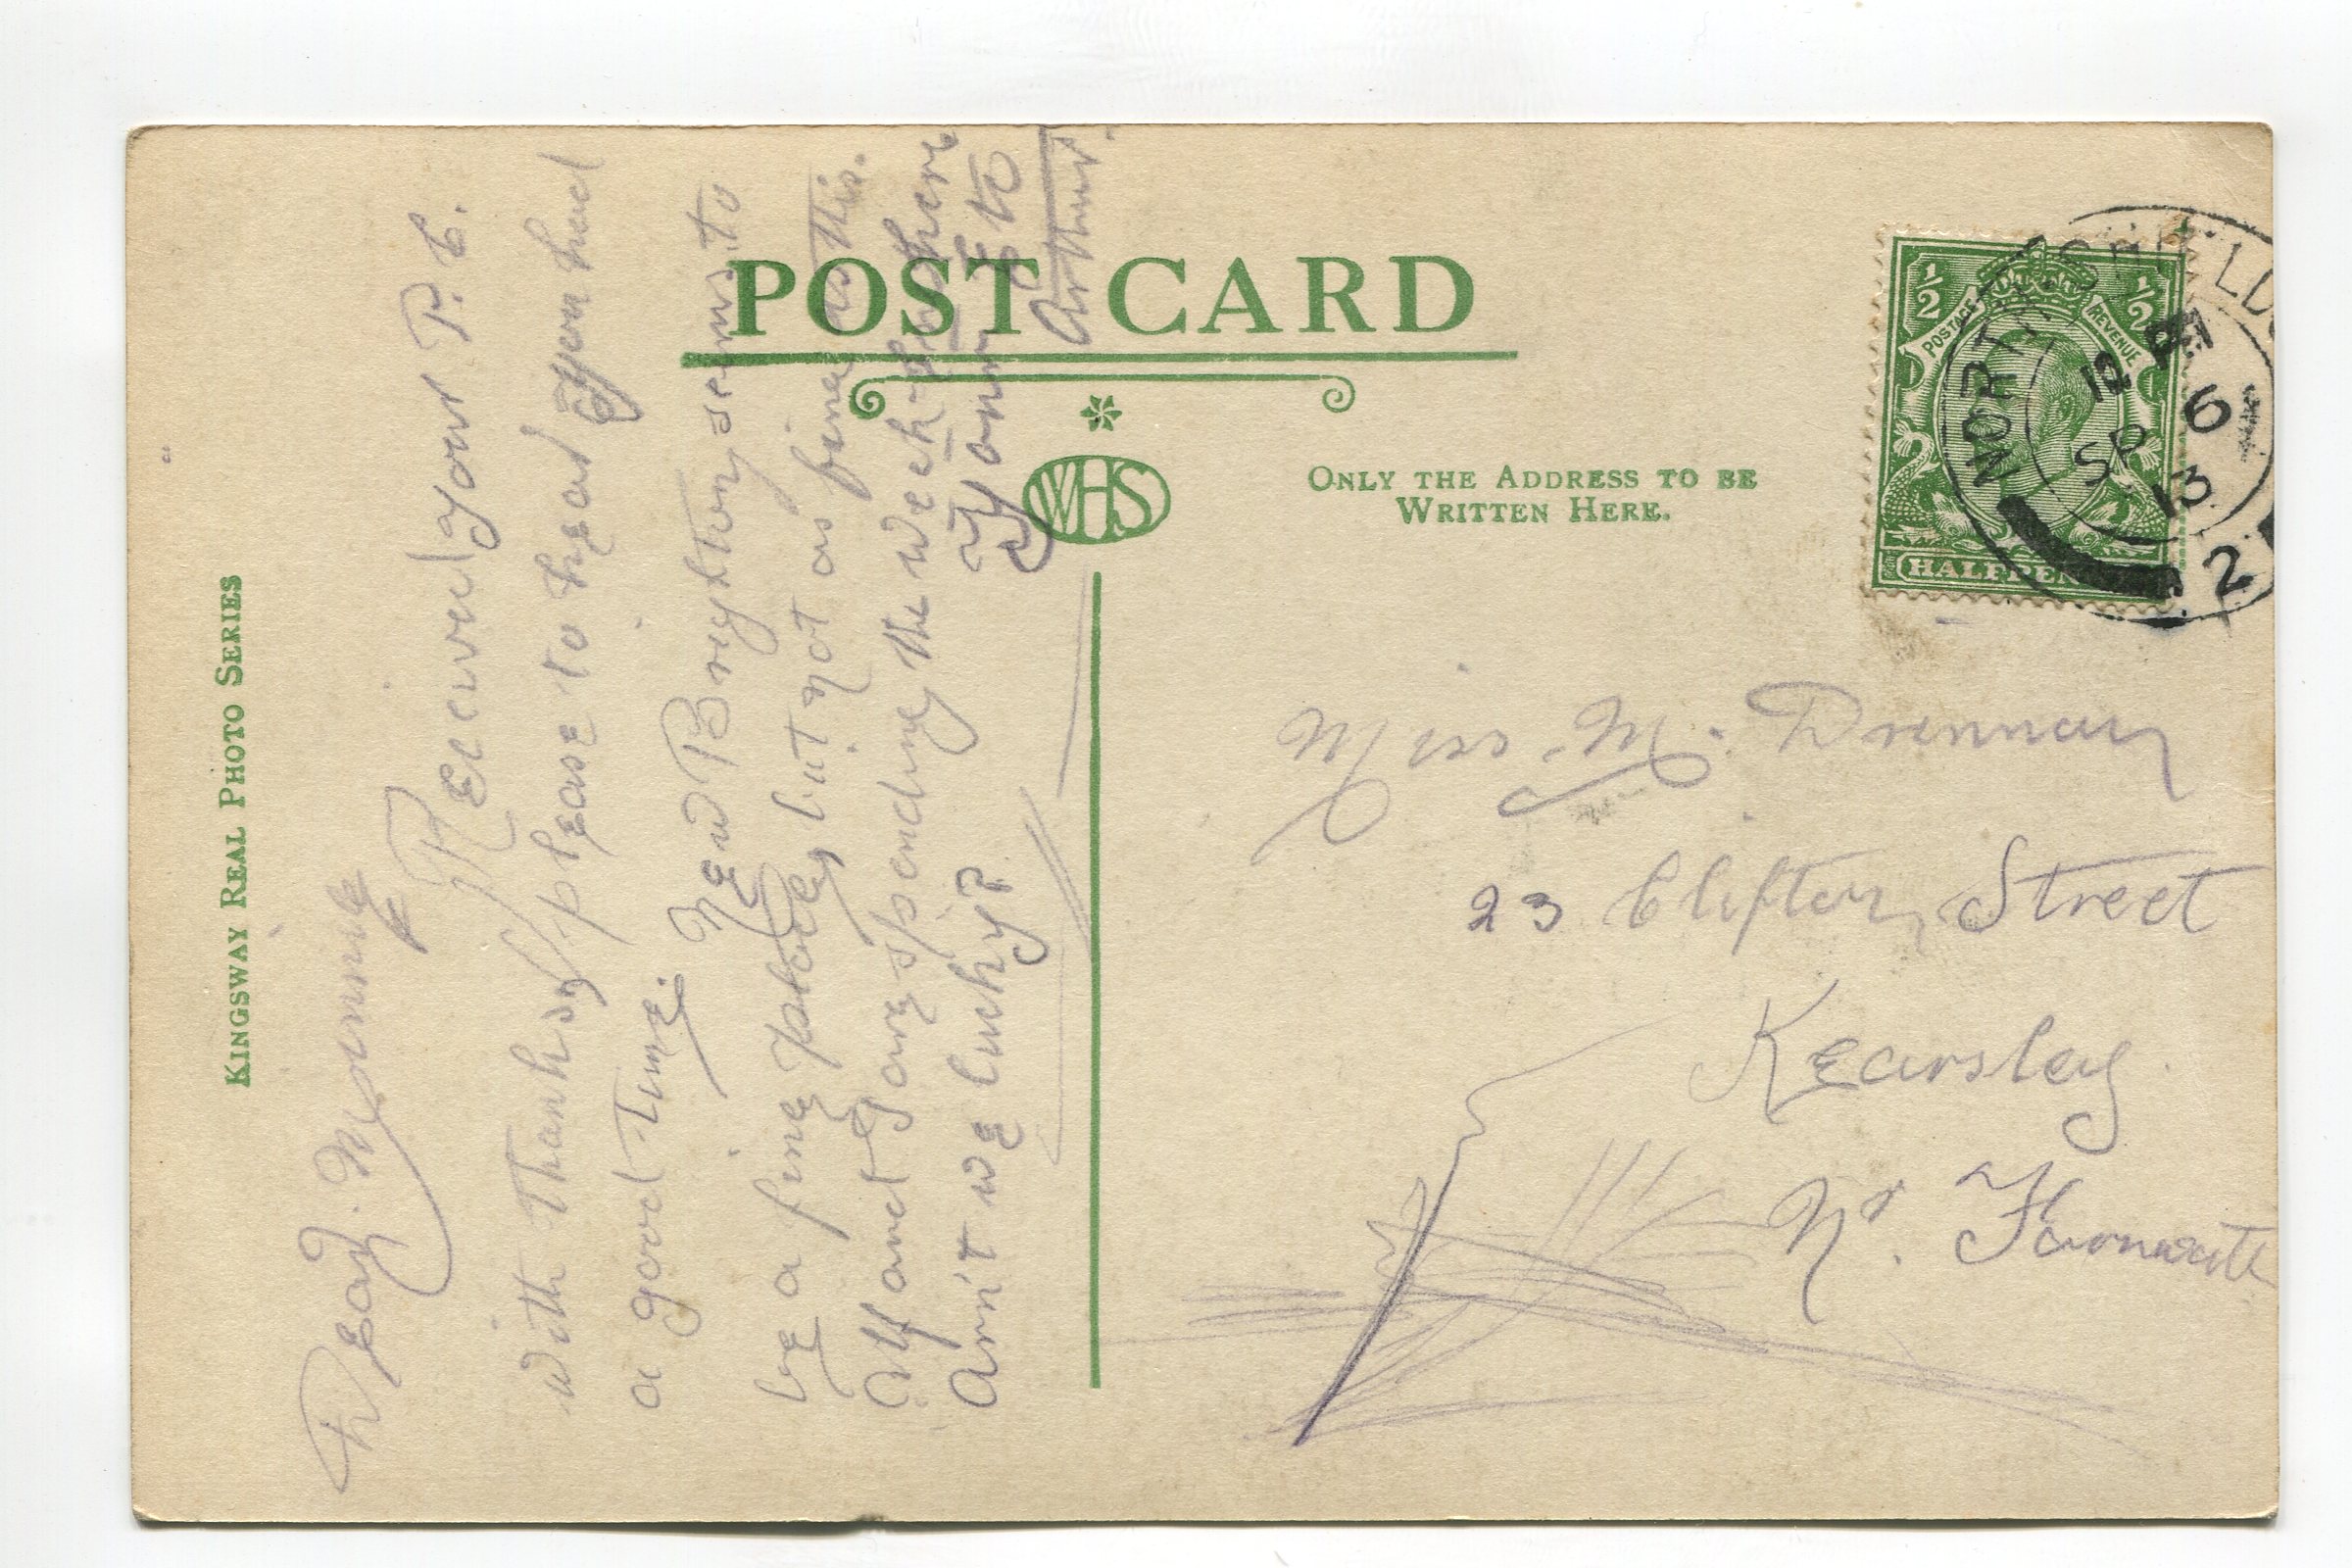 KINGSWAY REAL PHOTO SERIES
POST CARD
WHS
ONLY THE ADDRESS TO BE
WRITTEN HERE.
½ ½
POSTAGE REVENUE
HALFPEN
NORTH
12
SP 6
13
2
Dear Minnie
Received your P.C.
with Thanks please to hear you had
a good Time. New Brighton seems to
be a fine place, but not as fine as this.
Alf and I are spending the week-end here
Arn't we lucky?
Yours etc
Arthur.
Miss. M. Drennan
23 Clifton Street
Kearsley
Nr. Farnworth